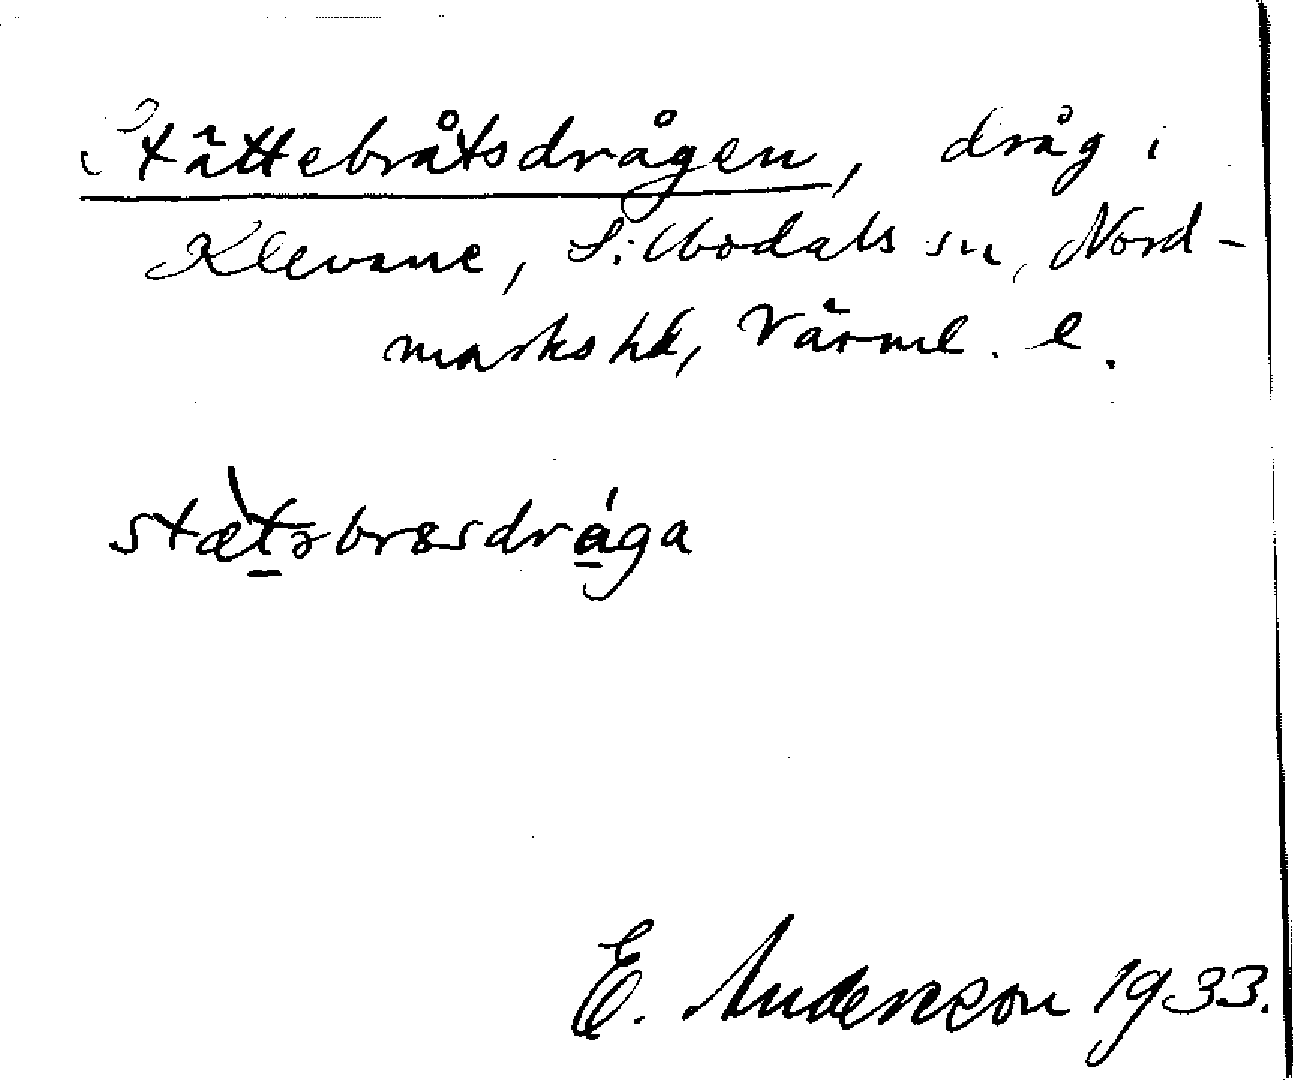 Stättebråtsdrågen, dråg i
Klevane, Silbodals sn, Nord-
marks hd, Värml. l.
stætəbrɷsdrága
E. Andersson 1933.